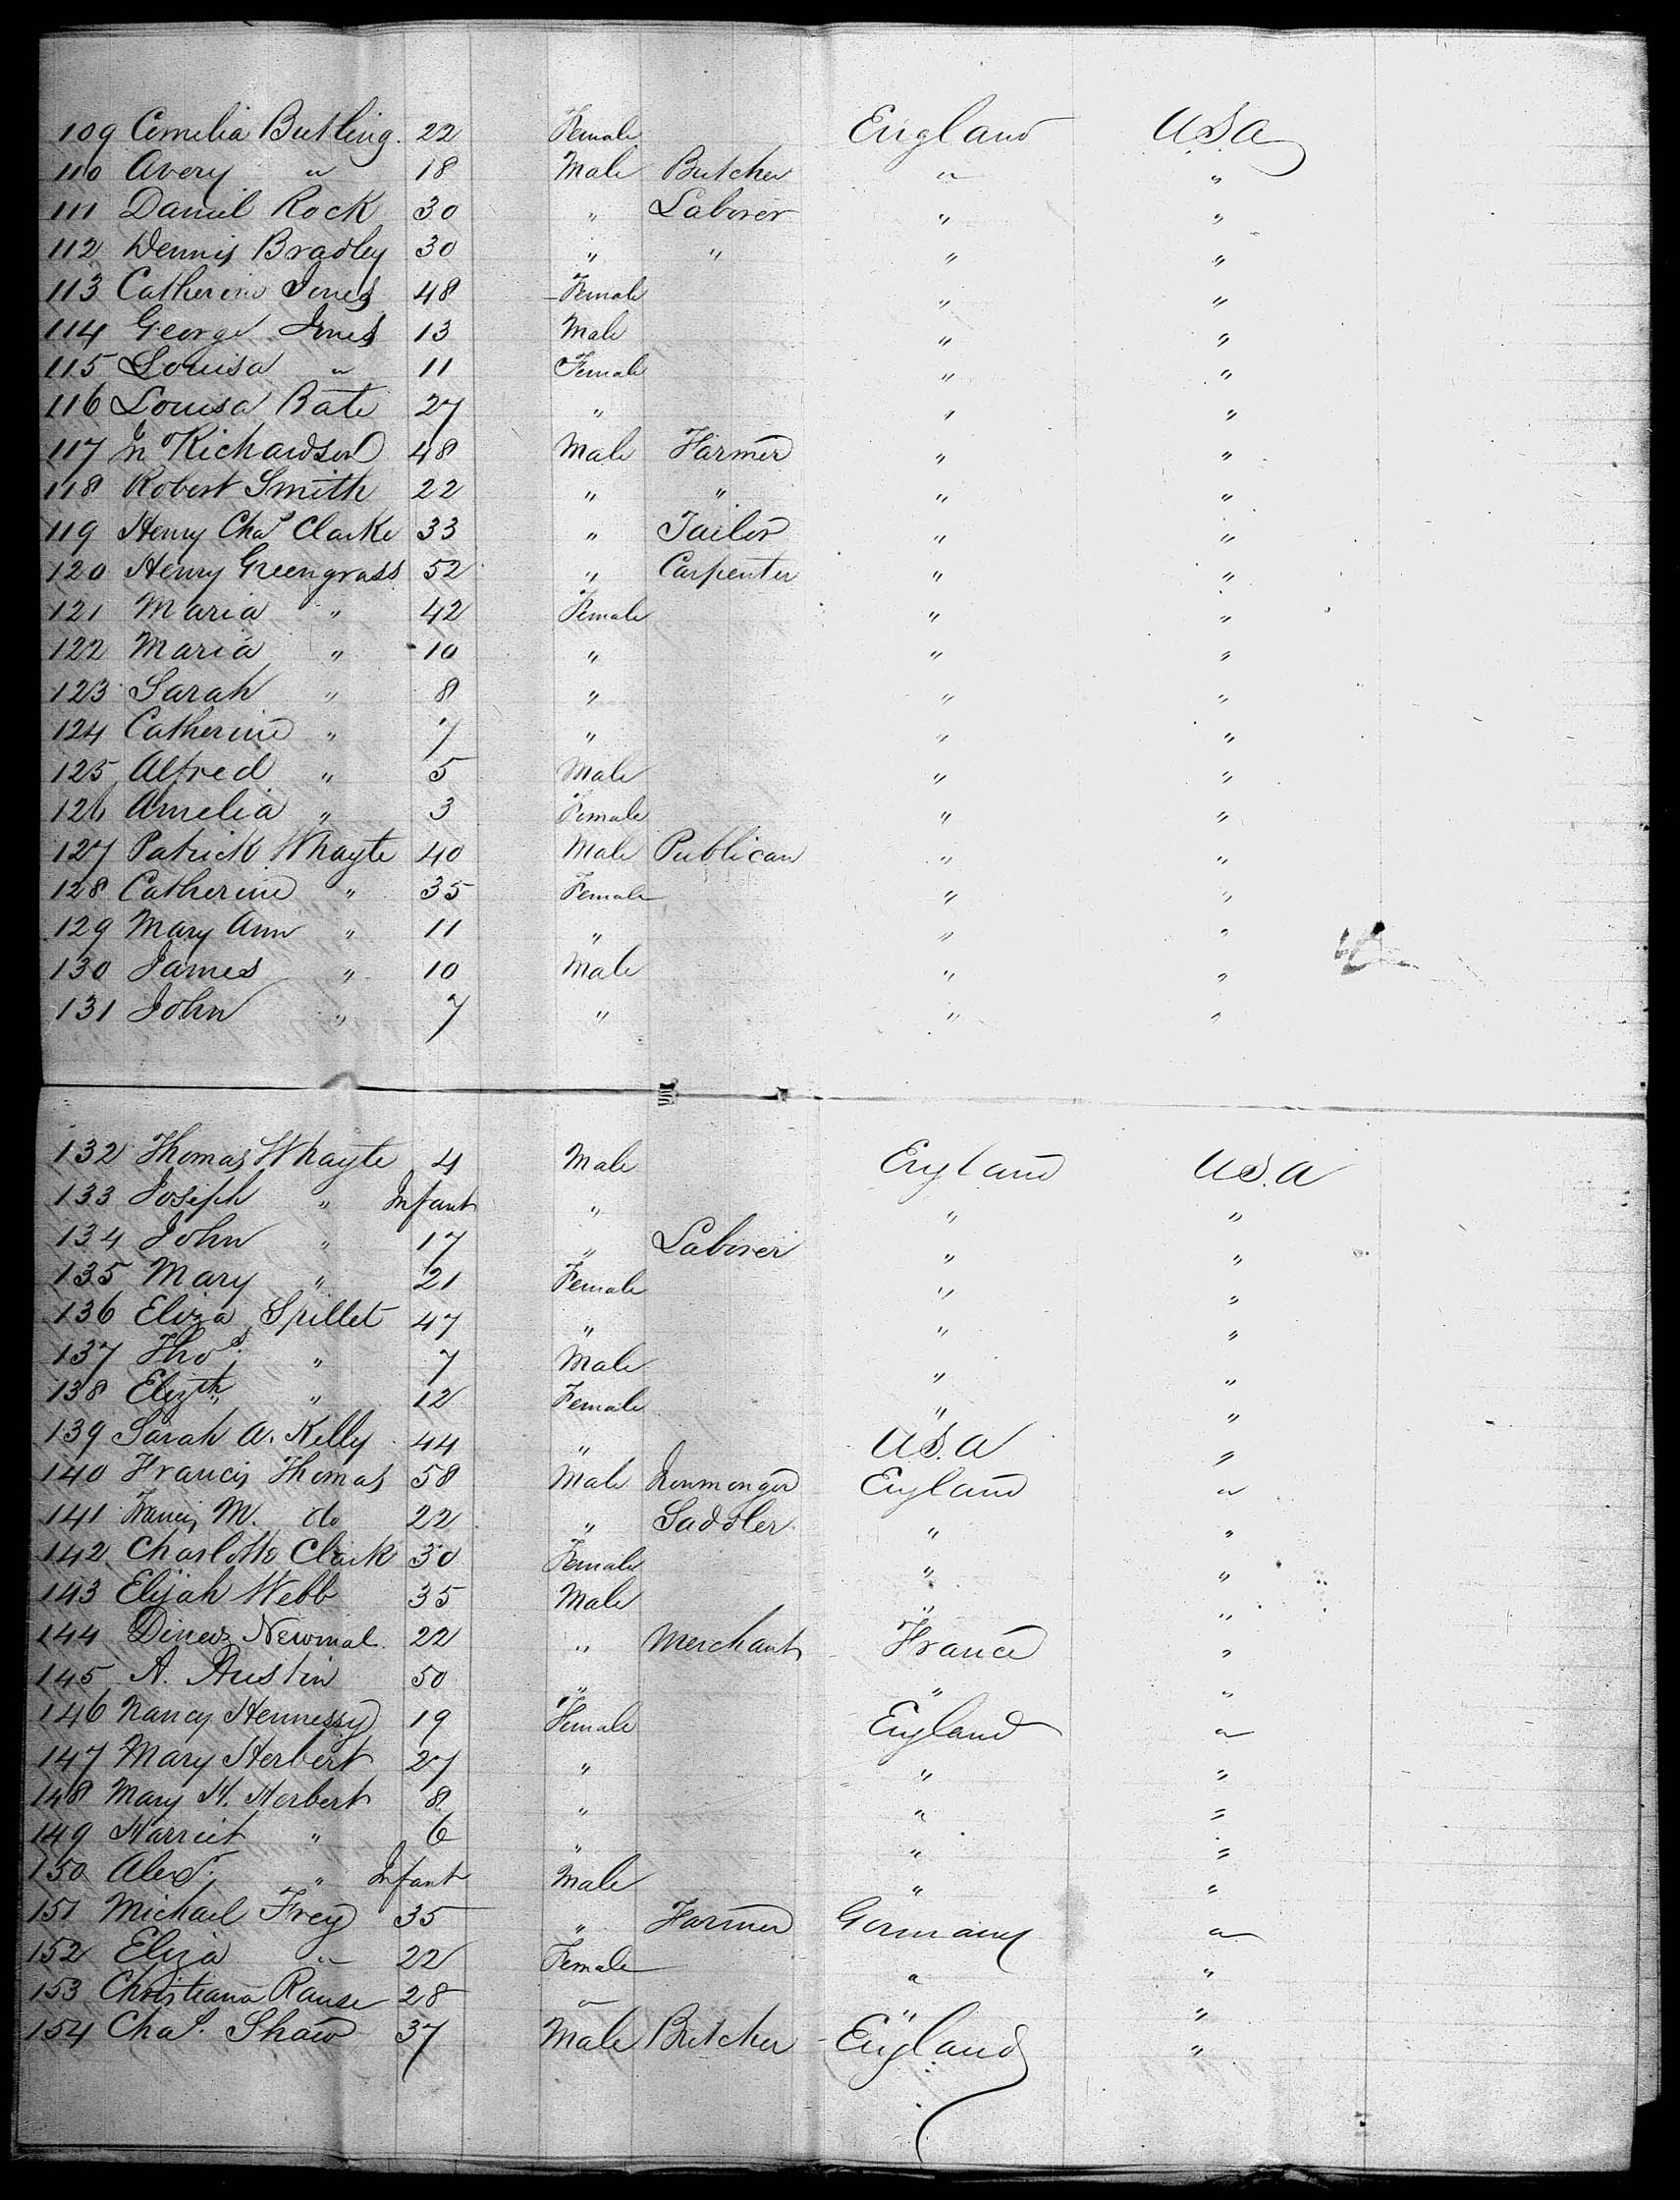 109 Cornelia Butling. 22 Female England U.S.A
110 Avery " 18 Male Butcher " "
111 Daniel Rock 30 " Laborer " "
112 Dennis Bradley 30 " " " "
113 Catherine Jones 48 Female " "
114 George Jones 13 Male " "
115 Louisa " 11 Female " "
116 Louisa Bate 27 " " "
117 Jn Richardson 48 Male Farmer " "
118 Robert Smith 22 " " " "
119 Henry Chas Clarke 33 " Tailor " "
120 Henry Greengrass 52 " Carpenter " "
121 Maria " 42 Female " "
122 Maria " 10 " " "
123 Sarah " 8 " " "
124 Catherine " 7 " " "
125 Alfred " 5 Male " "
126 Amelia " 3 Female " "
127 Patrick Whayte 40 Male Publican " "
128 Catherine " 35 Female " "
129 Mary Ann " 11 " " "
130 James " 10 Male " "
131 John " 7 " " "
132 Thomas Whayte 4 Male England U.S.A
133 Joseph " Infant " " "
134 John " 17 " Laborer " "
135 Mary " 21 Female " "
136 Eliza Spillet 47 " " "
137 Thos. " 7 Male " "
138 Elizth " 12 Female " "
139 Sarah A. Kelly 44 " U.S.A "
140 Francis Thomas 58 Male Ironmonger England "
141 Francis M. do 22 " Saddler " "
142 Charlotte Clark 30 Female " "
143 Elijah Webb 35 Male " "
144 Newmal. 22 " Merchant France "
145 A. Austin 50 " " "
146 Nancy Hennessy 19 Female England "
147 Mary Herbert 27 " " "
148 Mary H. Herbert 8 " " "
149 Harriet " 6 " " "
150 Alexr. " Infant Male " "
151 Michael Frey 35 " Farmer Germany "
152 Eliza " 22 Female " "
153 Christiana Rause 28 " " "
154 Chas. Shaw 37 Male Butcher England "